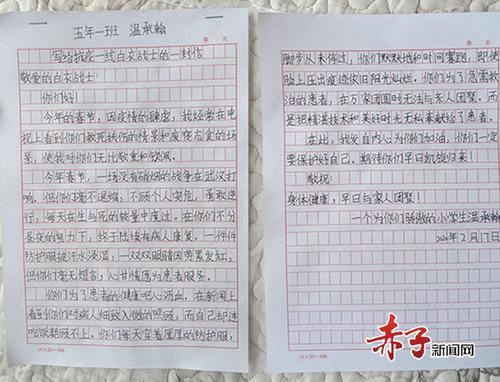 五年一班 温承翰
写给抗疫一线白衣战士的一封信
敬爱的白衣战士:
你们好!
今年的春节,因疫情的肆虐,我经常在电
视上看到你们救死扶伤的情景和废寝忘食的场
景,使我对你们无比敬重和钦佩。
今年春节,一场没有硝烟的战争在武汉打
响。但你们毫不退缩,不顾个人安危,勇敢逆
行,每天在生与死的较量中度过。在你们不分
昼夜的努力下,终于陆续有病人康复。一件件
防护服被汗水浸湿,一双双眼睛因劳累发红,
但你们毫无怨言,心甘情愿为患者服务。
你们为了患者的健康呕心沥血,在新闻上
看到你们对病人细致入微的照顾,而自己却连
吃饭都顾不上。你们每天穿着厚厚的防护服,
15×20=300
脚步从未停过,你们默默地和时间赛跑,即使
脸上压出痕迹依旧阳光灿烂。你们为了急需救
治的患者,在万家团圆时无法与亲人团聚。而
是把精湛技术和美好时光无私奉献给了患者。
在此,我发自内心为你们加油,你们一定
要保护好自己,期待你们早日凯旋归来!
敬祝:
身体健康,早日与家人团聚!
一个为你们骄傲的小学生温承翰
2020年2月17日
15×20=300
赤子新闻网